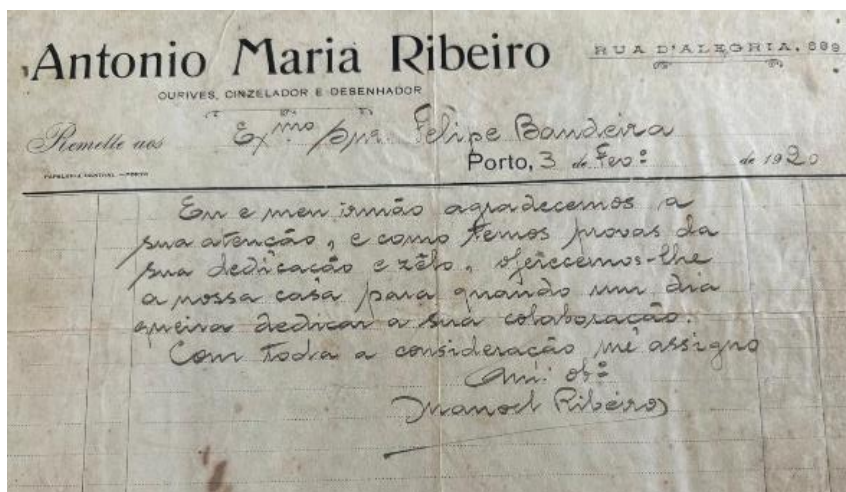 Antonio Maria Ribeiro
RUA D'ALEGRIA, 889
OURIVES, CINZELADOR E DESENHADOR
Remette aos Exmo Snr. Felipe Bandeira
Porto, 3 de Fevº de 1920
Eu e meu irmão agradecemos a
sua atenção, e como temos provas da
sua dedicação e zêlo, oferecemos-lhe
a nossa casa para quando um dia
queira dedicar a sua colaboração.
Com toda a consideração me assigno
Amº obº
Manoel Ribeiro